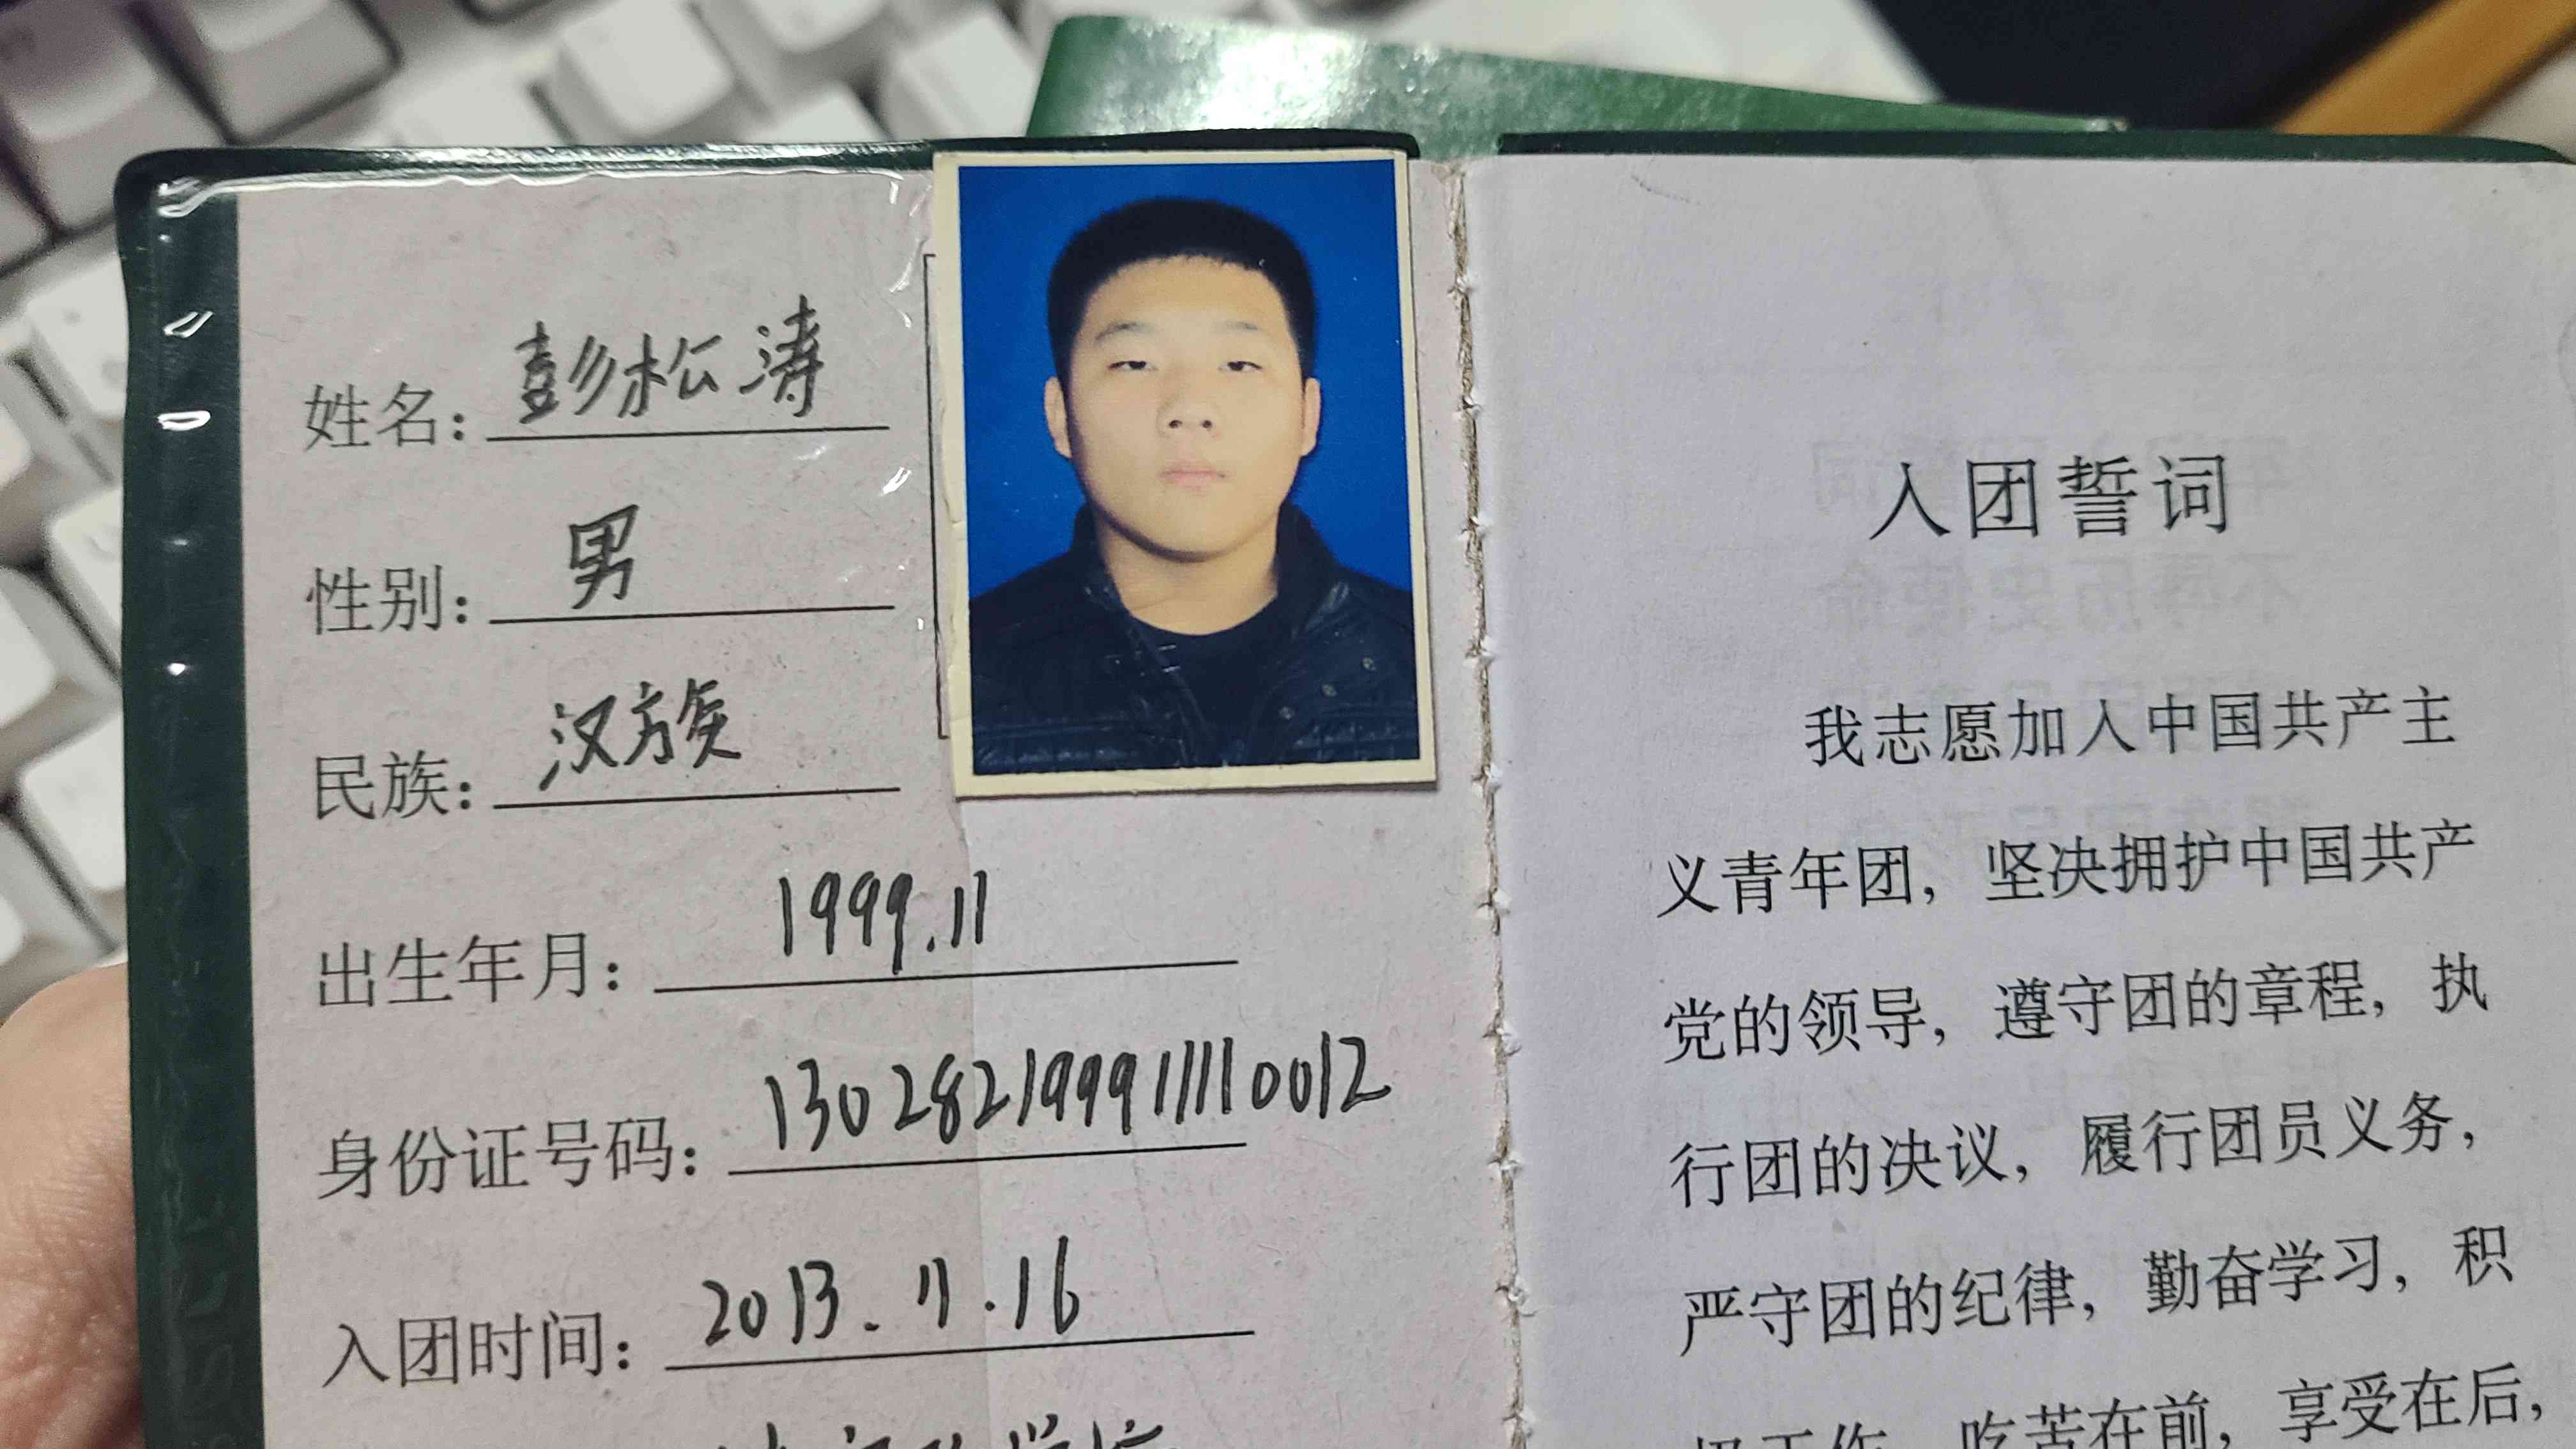 姓名：彭松涛
性别：男
民族：汉族
出生年月：1999.11
身份证号码：130282199911110012
入团时间：2013.11.16
入团誓词
我志愿加入中国共产主
义青年团，坚决拥护中国共产
党的领导，遵守团的章程，执
行团的决议，履行团员义务，
严守团的纪律，勤奋学习，积
吃苦在前，享受在后，